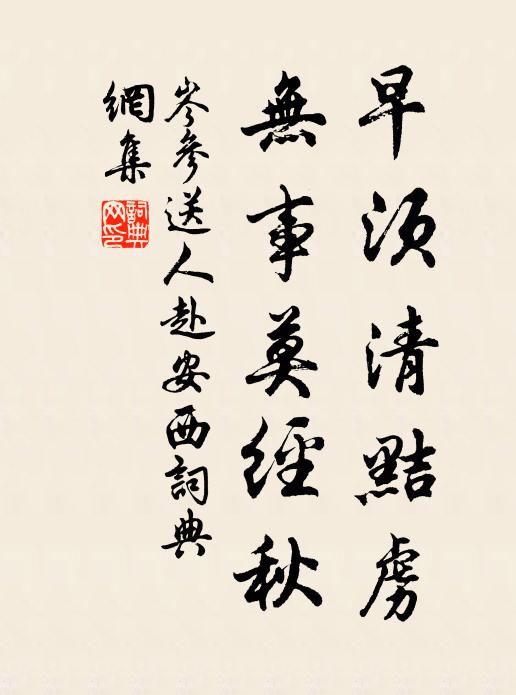 早須清黠虏
無事莫經秋
岑參送人赴安西詞典
網集
詞典
网印